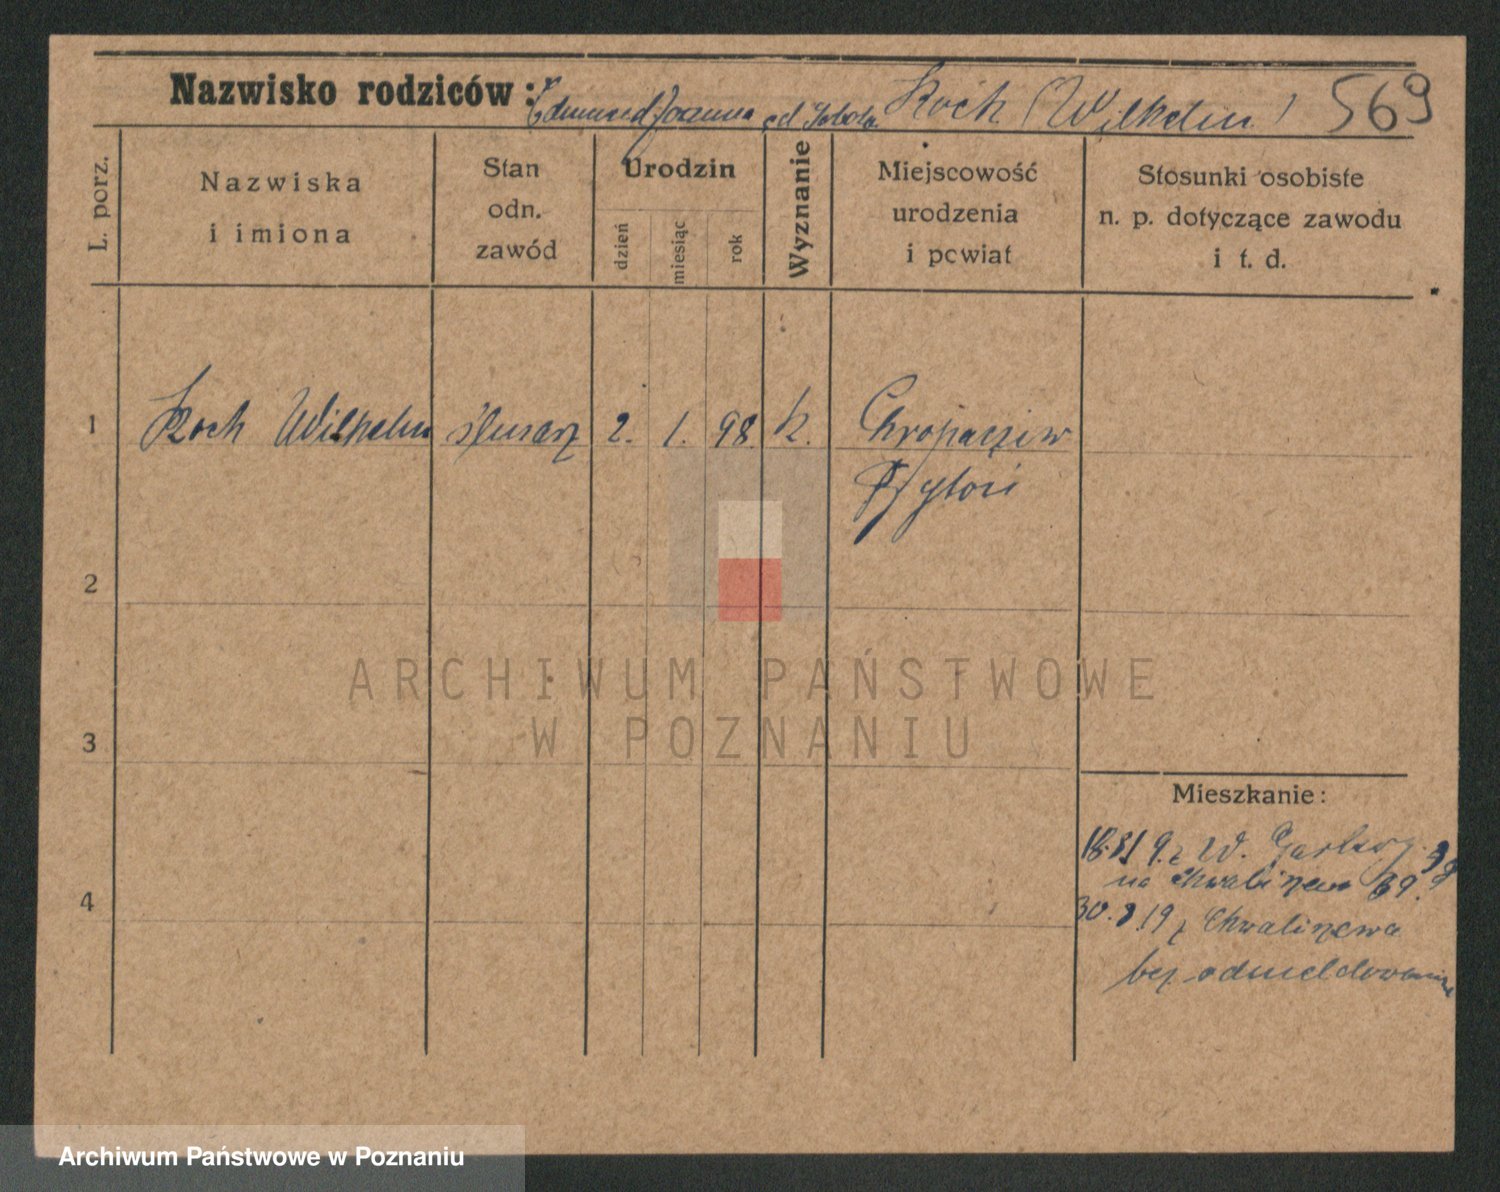 Nazwisko rodziców: Edmund Joanna Koch (Wilhelm) 569
L. porz.
Nazwiska
i imiona
Stan
odn.
zawód
Urodzin
dzień
miesiąc
rok
Wyznanie
Miejscowość
urodzenia
i powiat
Stosunki osobiste
n. p. dotyczące zawodu
i t. d.
1 Koch Wilhelm ślusarz 2. 1. 98 k. Chropaczów
Bytoń
2
3
4
Mieszkanie:
z W.
na Chwaliszewo 69.
30. 19 z Chwaliszewa
bez odmeldowania
ARCHIWUM PAŃSTWOWE
W POZNANIU
Archiwum Państwowe w Poznaniu